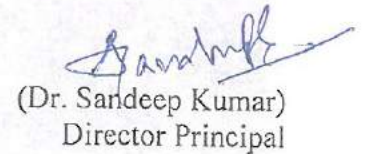 (Dr. Sandeep Kumar)
Director Principal